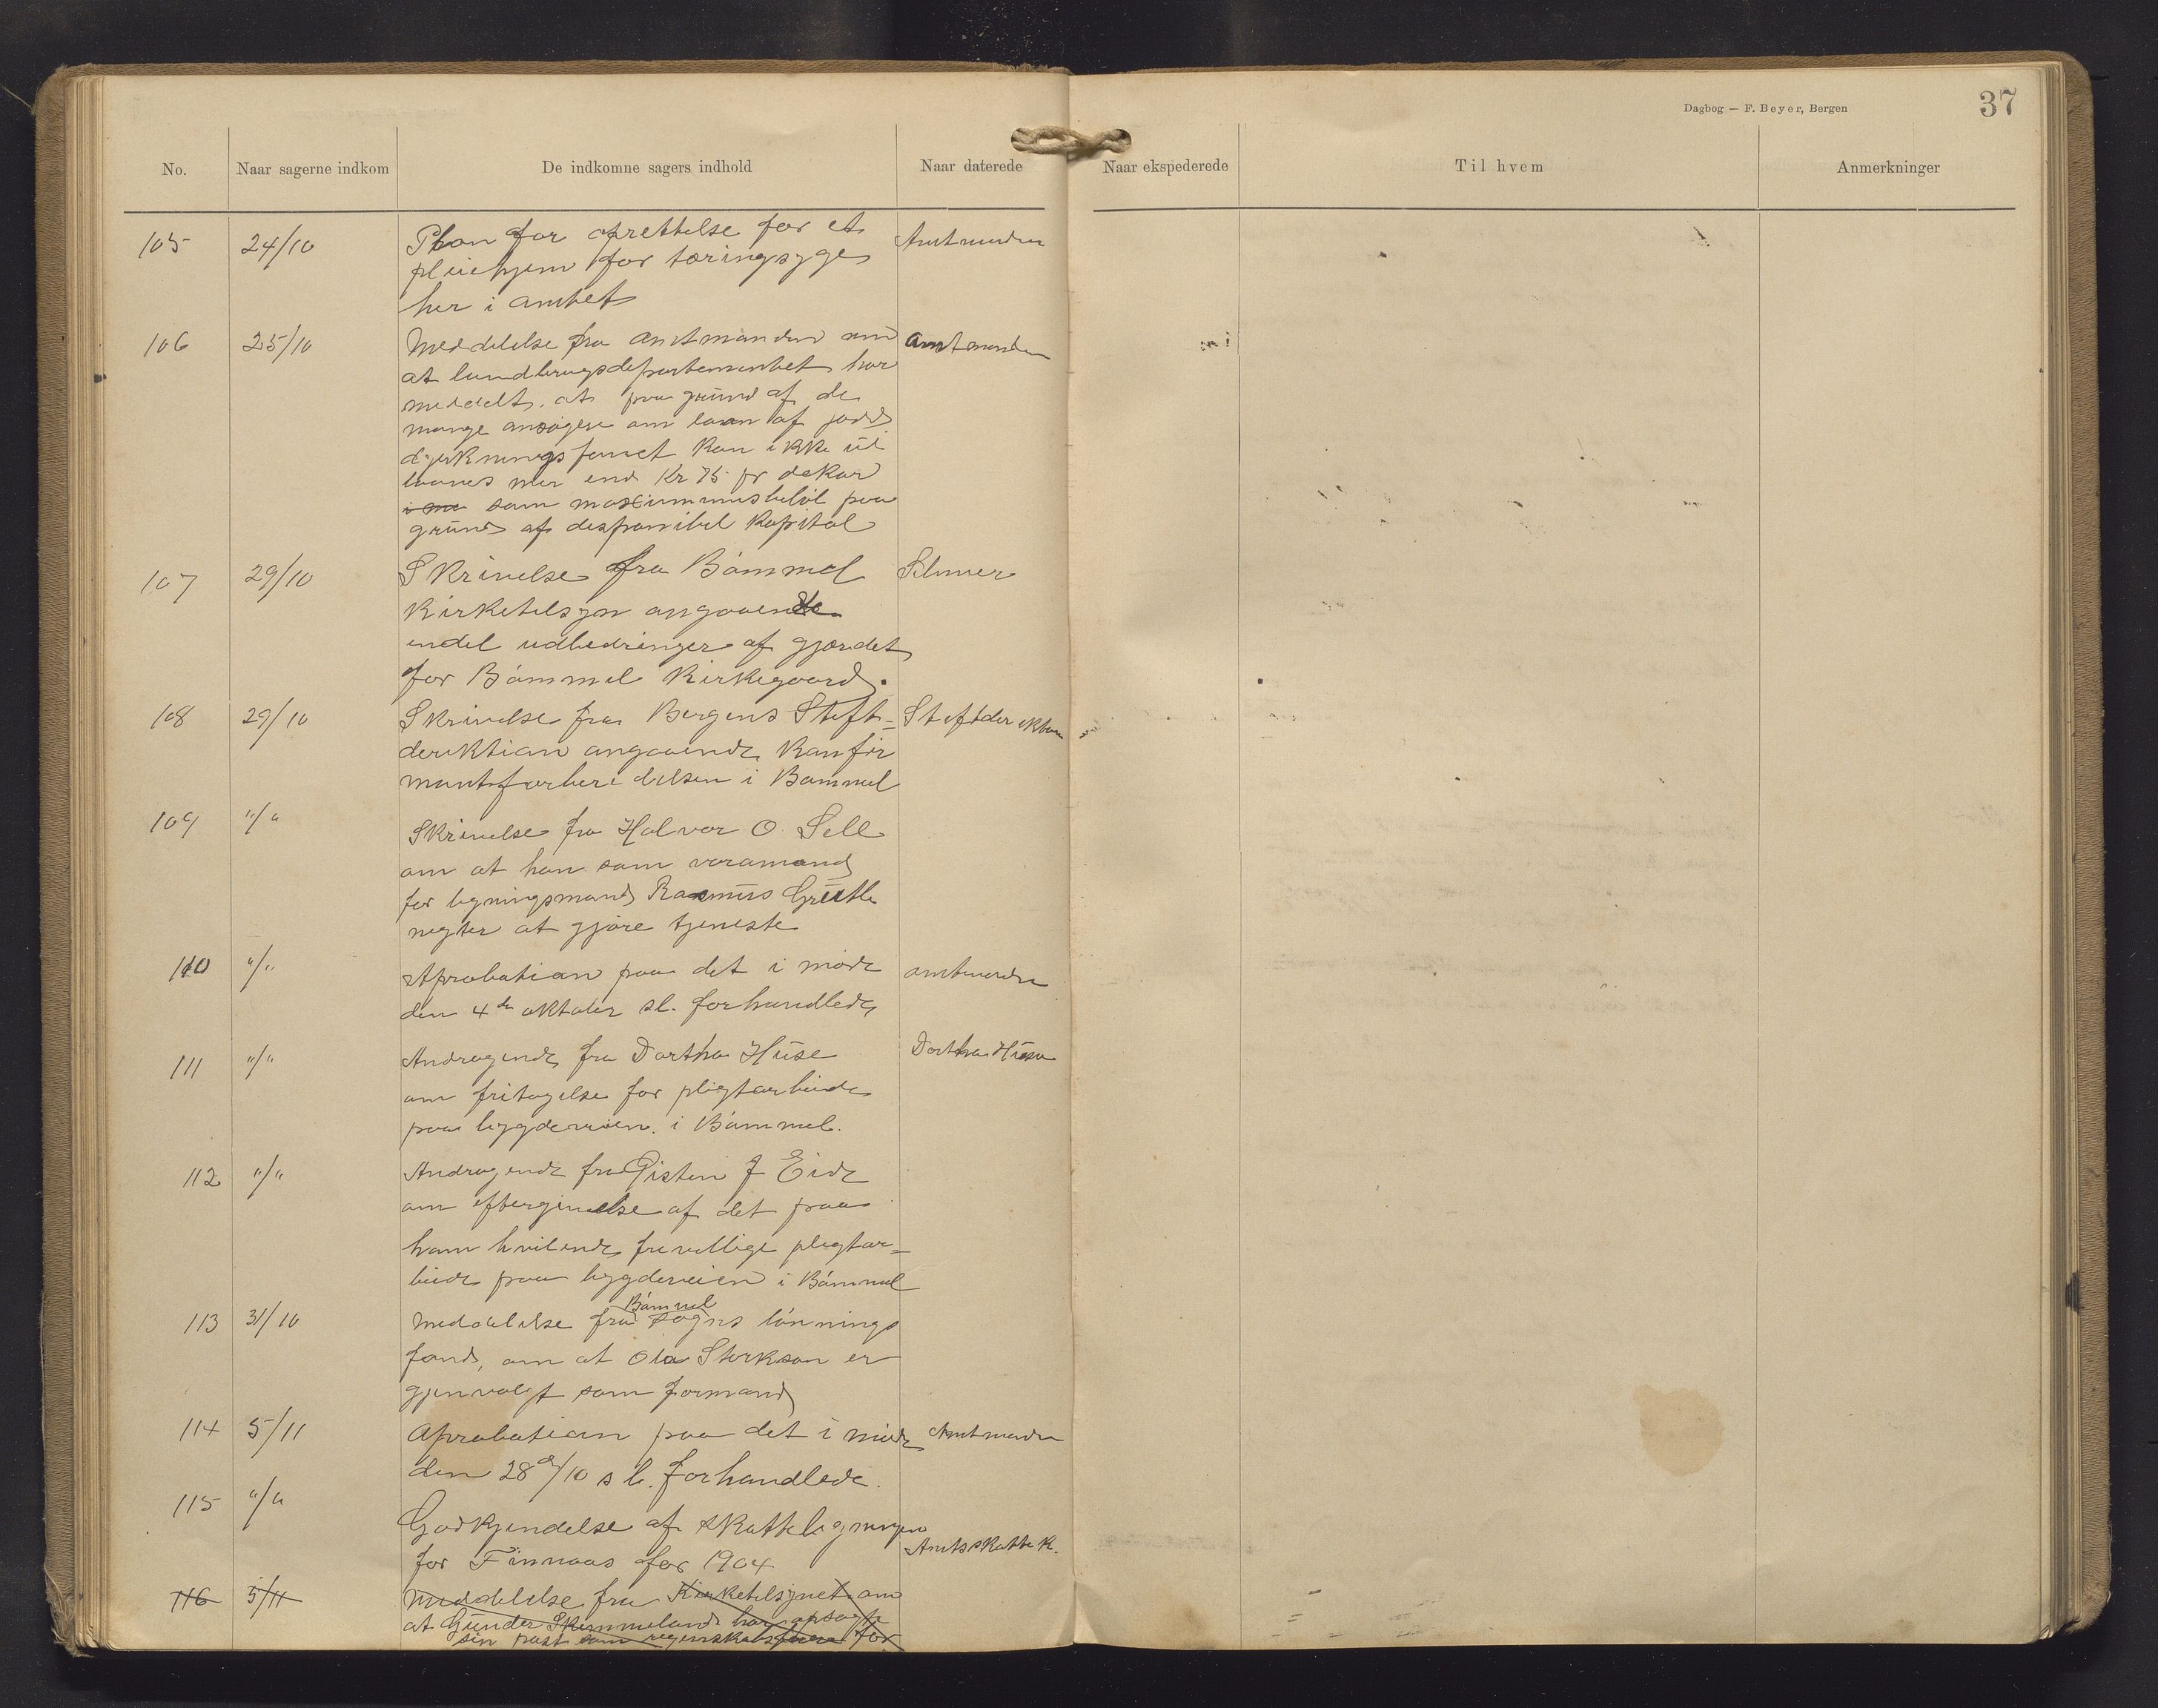 Dagbog — F. Beyer, Bergen
37
No. Naar sagerne indkom De indkomne sagers indhold Naar daterede Naar ekspederede Til hvem Anmerkninger
105 24/10 Plan for oprettelse for et Amtmanden
pleiehjem for tæringsyge
her i amtet
106 25/10 Meddelelse fra amtmanden om amtmanden
at landbrugsdepartementet har
meddelt, at paa grund af de
mange ansøgere om laan af jord
dyrkningsfonet kan ikke ud
laanes mer end Kr 75 pr dekar
som maximumsbeløb paa
grund af desponibel kapital
107 29/10 Skrivelse fra Bømmel
Kirketilsyn angaaende
endel udbedringer af gjærdet
for Bømmel Kirkegaard.
108 29/10 Skrivelse fra Bergens Stift= Stiftderektion
derektion angaaende Konfir
mantforberedelsen i Bømmel
109 "/" Skrivelse fra Halvor O. Sele
om at han som varamand
for ligningsmand Rasmus Grutle
negter at gjøre tjeneste
110 "/" Aprobation paa det i møde amtmanden
den 4de oktober sl. forhandlede
111 "/" Andragende fra Dorthea Huse Dorthea Huse
om fritagelse for pligtarbeide
paa bygdeveien i Bømmel.
112 "/" Andragende fra Gisten J Eide
om eftergivelse af det paa
ham hvilende frivillige pligtar=
beide paa bygdeveien i Bømmel
113 31/10 Meddelelse fra Bømmel sogns lønnings
fond, om at Ola Storkson er
gjenvalgt som formand
114 5/11 Aprobation paa det i møde Amtmanden
den 28de/10 sl. forhandlede.
115 "/" Godkjendelse af skatteligningen
for Finnaas for 1904 Amtsskattek.
116 5/11 Meddelelse fra Kirketilsynet om
at Gunder Skimmeland har opsagt
sin post som regnskabsfører for